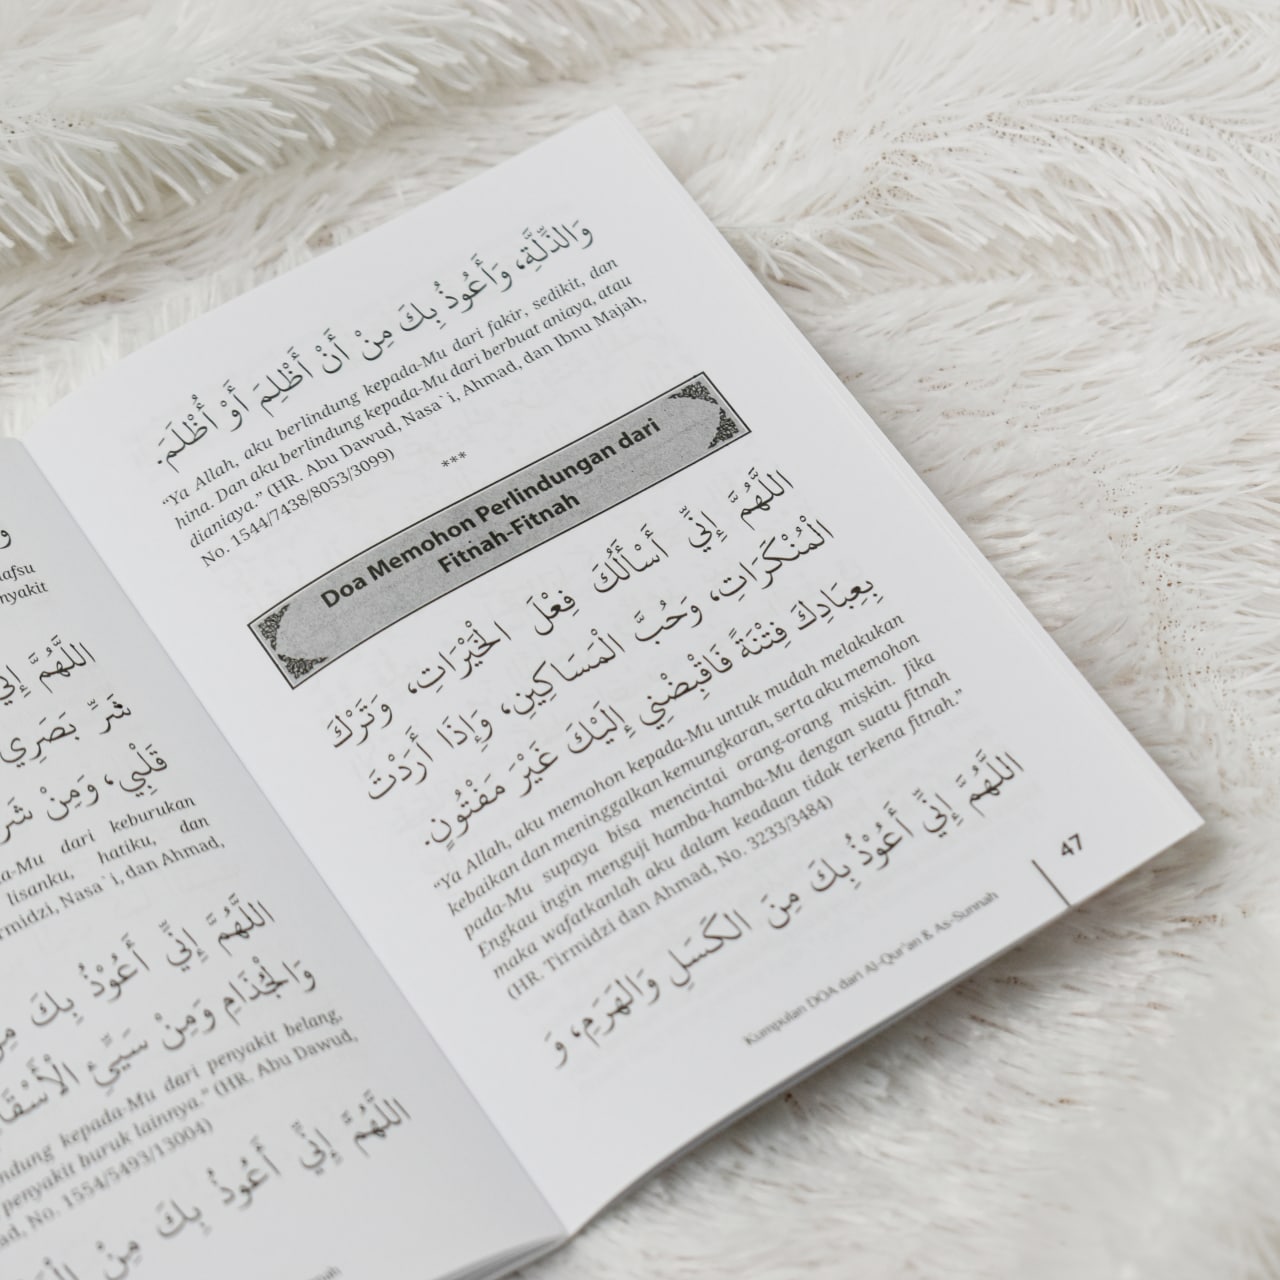 afsu
nyakit
اللَّهُمَّ إِنِّي
شَرِّ بَصَرِي
قَلْبِي، وَمِنْ شَرِّ
a-Mu dari keburukan
lisanku, hatiku, dan
rmidzi, Nasa`i, dan Ahmad,
اللَّهُمَّ إِنِّي أَعُوْذُ بِكَ مِنَ
وَالْجُذَامِ وَمِنْ سَيِّئِ الْأَسْقَا
ndung kepada-Mu dari penyakit belang,
penyakit buruk lainnya.” (HR. Abu Dawud,
ad, No. 1554/5493/13004)
اللَّهُمَّ إِنِّي أَعُوْذُ بِكَ مِنْ
nnah
وَالذِّلَّةِ، وَأَعُوْذُ بِكَ مِنْ أَنْ أَظْلِمَ أَوْ أُظْلَمَ.
“Ya Allah, aku berlindung kepada-Mu dari fakir, sedikit, dan
hina. Dan aku berlindung kepada-Mu dari berbuat aniaya, atau
dianiaya.” (HR. Abu Dawud, Nasa`i, Ahmad, dan Ibnu Majah,
No. 1544/7438/8053/3099)
***
Doa Memohon Perlindungan dari
Fitnah-Fitnah
اللَّهُمَّ إِنِّي أَسْأَلُكَ فِعْلَ الْخَيْرَاتِ، وَتَرْكَ
الْمُنْكَرَاتِ، وَحُبَّ الْمَسَاكِينِ، وَإِذَا أَرَدْتَ
بِعِبَادِكَ فِتْنَةً فَاقْبِضْنِي إِلَيْكَ غَيْرَ مَفْتُونٍ.
“Ya Allah, aku memohon kepada-Mu untuk mudah melakukan
kebaikan dan meninggalkan kemungkaran, serta aku memohon
pada-Mu supaya bisa mencintai orang-orang miskin. Jika
Engkau ingin menguji hamba-hamba-Mu dengan suatu fitnah
maka wafatkanlah aku dalam keadaan tidak terkena fitnah.”
(HR. Tirmidzi dan Ahmad, No. 3233/3484)
اللَّهُمَّ إِنِّي أَعُوْذُ بِكَ مِنَ الكَسَلِ وَالهَرَمِ، وَ
Kumpulan DOA dari Al-Qur'an & As-Sunnah
47